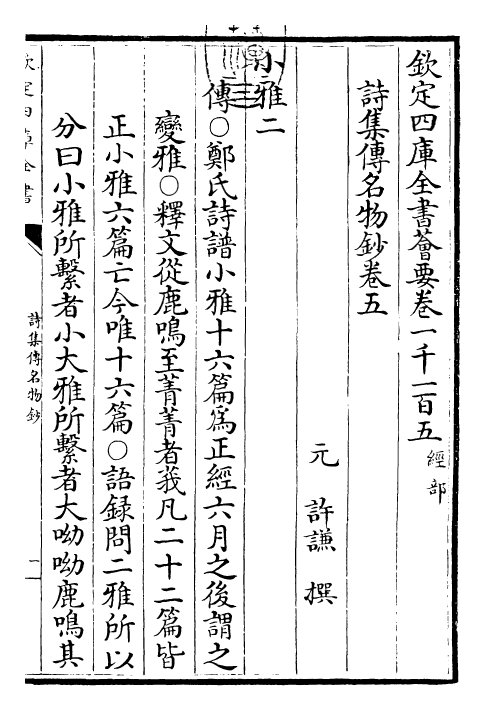 欽定四庫全書薈要卷一千一百五 經部
詩集傳名物鈔卷五
元 許謙 撰
小雅二
傳○鄭氏詩譜小雅十六篇為正經六月之後謂之
變雅○釋文從鹿鳴至菁菁者莪凡二十二篇皆
正小雅六篇亡今唯十六篇○語録問二雅所以
分曰小雅所繫者小大雅所繫者大呦呦鹿鳴其
欽定四庫全書
詩集傳名物鈔
一